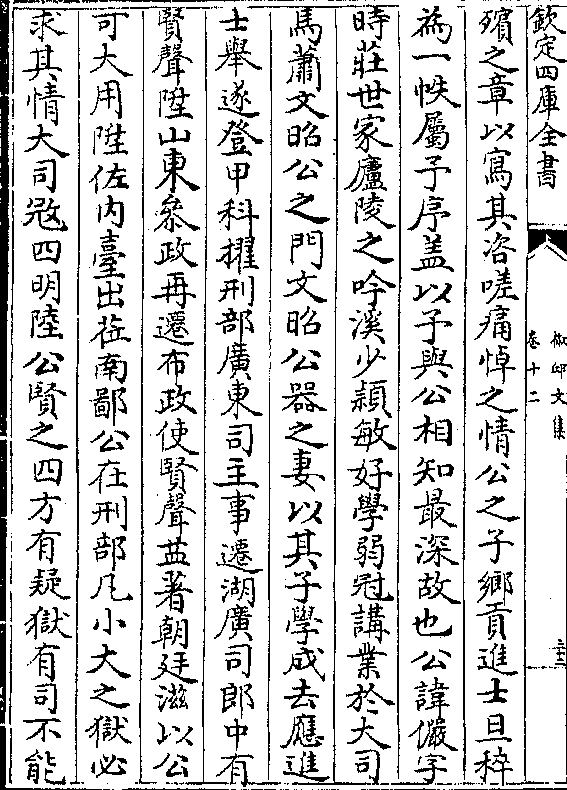 欽定四庫全書
椒邱文集
卷十二
三十三
殯之章以寫其咨嗟痛悼之情公之子鄉貢進士旦稡
為一帙屬予序蓋以予與公相知最深故也公諱儼字
時莊世家廬陵之吟溪少穎敏好學弱冠講業於大司
馬蕭文昭公之門文昭公器之妻以其子學成去應進
士舉遂登甲科擢刑部廣東司主事遷湖廣司郎中有
賢聲陞山東叅政再遷布政使賢聲益著朝廷滋以公
可大用陞佐內臺出莅南鄙公在刑部凡小大之獄必
求其情大司㓂四明陸公賢之四方有疑獄有司不能